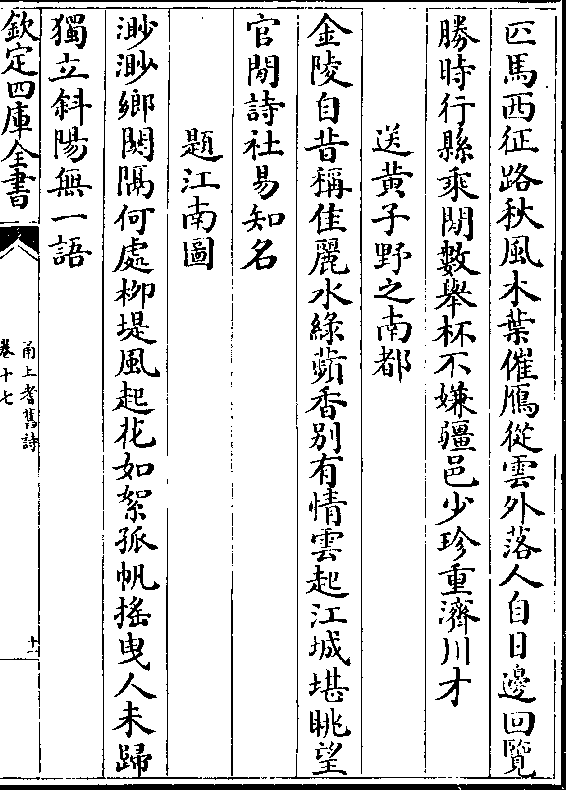 匹馬西征路秋風木葉催鴈從雲外落人自日邊回覽
勝時行縣乘閒數舉杯不嫌疆邑少珍重濟川才
送黃子野之南都
金陵自昔稱佳麗水綠蘋香别有情雲起江城堪眺望
官閒詩社易知名
題江南圖
渺渺鄉闗隔何處柳堤風起花如絮孤帆搖曳人未歸
獨立斜陽無一語
欽定四庫全書
甬上耆舊詩
卷十七
十一